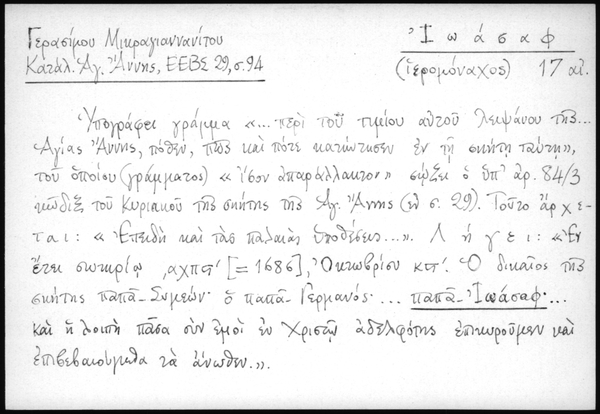 Γερασίμου Μικραγιαννανίτου
Κατάλ. Ἁγ. Ἄννης, ΕΕΒΣ 29, σ. 94
Ἰωάσαφ
(ἱερομόναχος) 17 αἰ.
Ὑπογράφει γράμμα «...περὶ τοῦ τιμίου αὐτοῦ λειψάνου τῆς...
Ἁγίας Ἄννης, πόθεν, πῶς καὶ πότε κατήντησεν ἐν τῇ σκήτῃ ταύτῃ»,
τοῦ ὁποίου (γράμματος) «ἴσον ἀπαράλλακτον» σῴζει ὁ ὑπ' ἀρ. 84/3
κῶδιξ τοῦ Κυριακοῦ τῆς σκήτης τῆς Ἁγ. Ἄννης (ἐν σ. 29). Τοῦτο ἄρχε-
ται: «Ἐπειδὴ καὶ τὰς παλαιὰς ὑποθέσεις...». Λήγει: «Ἐν
ἔτει σωτηρίῳ ͵αχπστ' [=1686], Ὀκτωβρίου κστ'. Ὁ δικαῖος τῆς
σκήτης παπᾶ-Συμεών· ὁ παπᾶ-Γερμανός·... παπᾶ-Ἰωάσαφ·...
καὶ ἡ λοιπὴ πᾶσα σὺν ἐμοὶ ἐν Χριστῷ ἀδελφότης ἐπικυροῦμεν καὶ
ἐπιβεβαιούμεθα τὰ ἄνωθεν.».